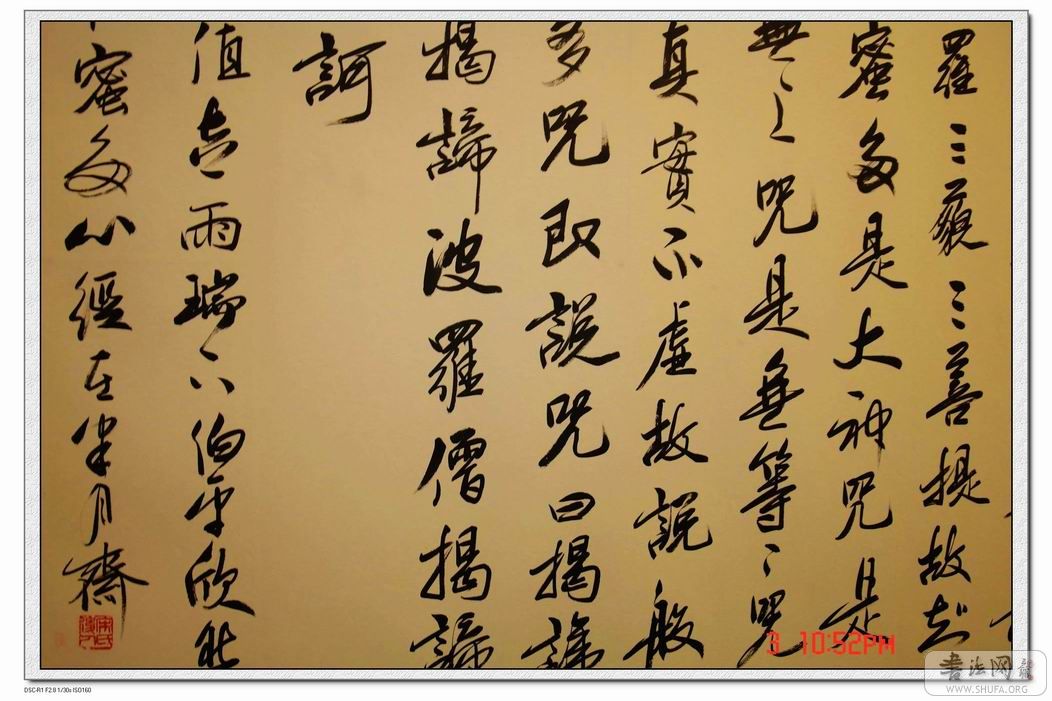 羅三藐三菩提故知
蜜多是大神咒是
無上咒是無等等咒
真實不虛故說般
多咒即說咒曰揭諦
揭諦波羅僧揭諦
訶
值吉雨瑞伯平欣
蜜多心經在半月齋
3 10:52PM
书法网
WWW.SHUFA.ORG
DSC-R1 F2.8 1/30s ISO160